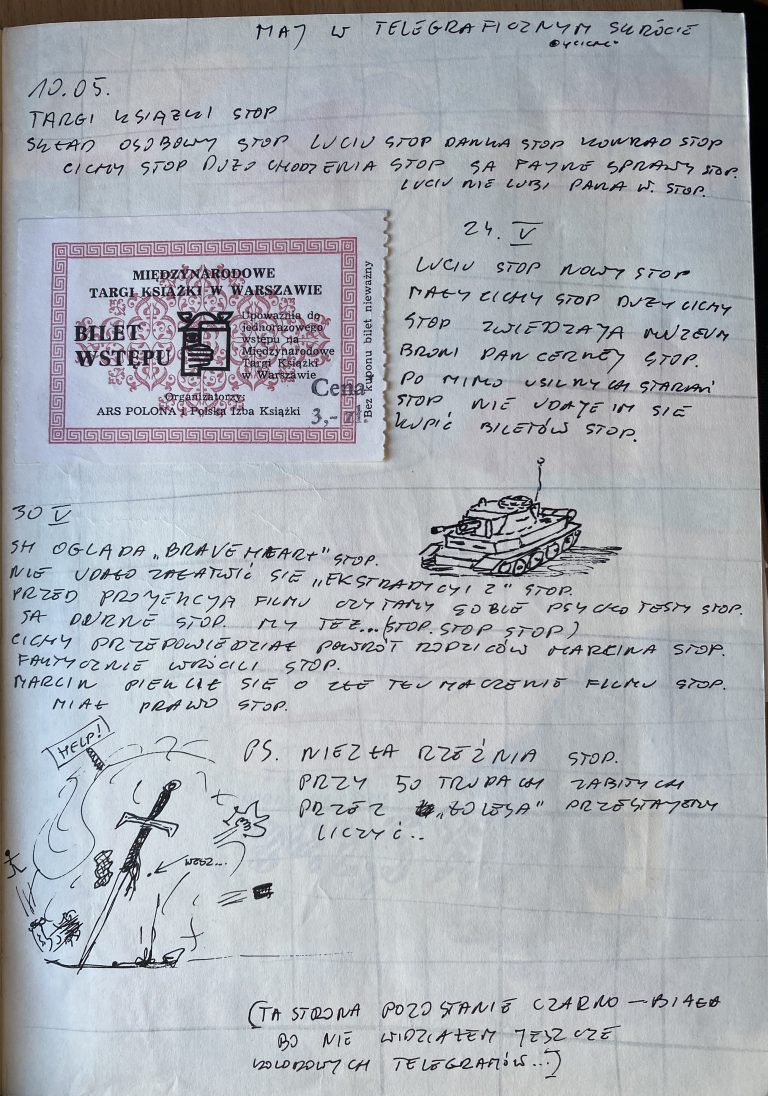 MAJ W TELEGRAFICZNYM SKRÓCIE
10.05.
TARGI KSIĄŻKI STOP
SKŁAD OSOBOWY STOP LUCIU STOP DANKA STOP KONRAD STOP
CICHY STOP DUŻO CHODZENIA STOP SĄ FAJNE SPRAWY STOP.
LUCIU NIE LUBI PANA W. STOP.
MIĘDZYNARODOWE
TARGI KSIĄŻKI W WARSZAWIE
BILET
WSTĘPU
Upoważnia do
jednorazowego
wstępu na
Międzynarodowe
Targi Książki
w Warszawie
Organizatorzy:
ARS POLONA i Polska Izba Książki
Cena
3,-
Bez kuponu bilet nieważny
24. V
LUCIU STOP NOWY STOP
MAŁY CICHY STOP DUŻY CICHY
STOP ZWIEDZAJĄ MUZEUM
BRONI PANCERNEJ STOP.
PO MIMO USILNYCH STARAŃ
STOP NIE UDAJE IM SIĘ
KUPIĆ BILETÓW STOP.
30 V
SH OGLĄDA „BRAVEHEART" STOP.
NIE UDAŁO ZAŁATWIĆ SIĘ „EKSTRADYCJI 2" STOP.
PRZED PROJEKCJĄ FILMU CZYTAMY SOBIE PSYCHOTESTY STOP.
SĄ DURNE STOP. MY TEŻ...(STOP. STOP STOP)
CICHY PRZEPOWIEDZIAŁ POWRÓT RODZICÓW MARCINA STOP.
FAKTYCZNIE WRÓCILI STOP.
MARCIN PIEKLIŁ SIĘ O ZŁE TŁUMACZENIE FILMU STOP.
MIAŁ PRAWO STOP.
HELP!
PS. NIEZŁA RZEŹNIA STOP.
PRZY 50 TRUPACH ZABITYCH
PRZEZ „ŁOLESA" PRZESTAJEMY
LICZYĆ..
(TA STRONA POZOSTANIE CZARNO-BIAŁA
BO NIE WIDZIAŁEM JESZCZE
KOLOROWYCH TELEGRAMÓW...)